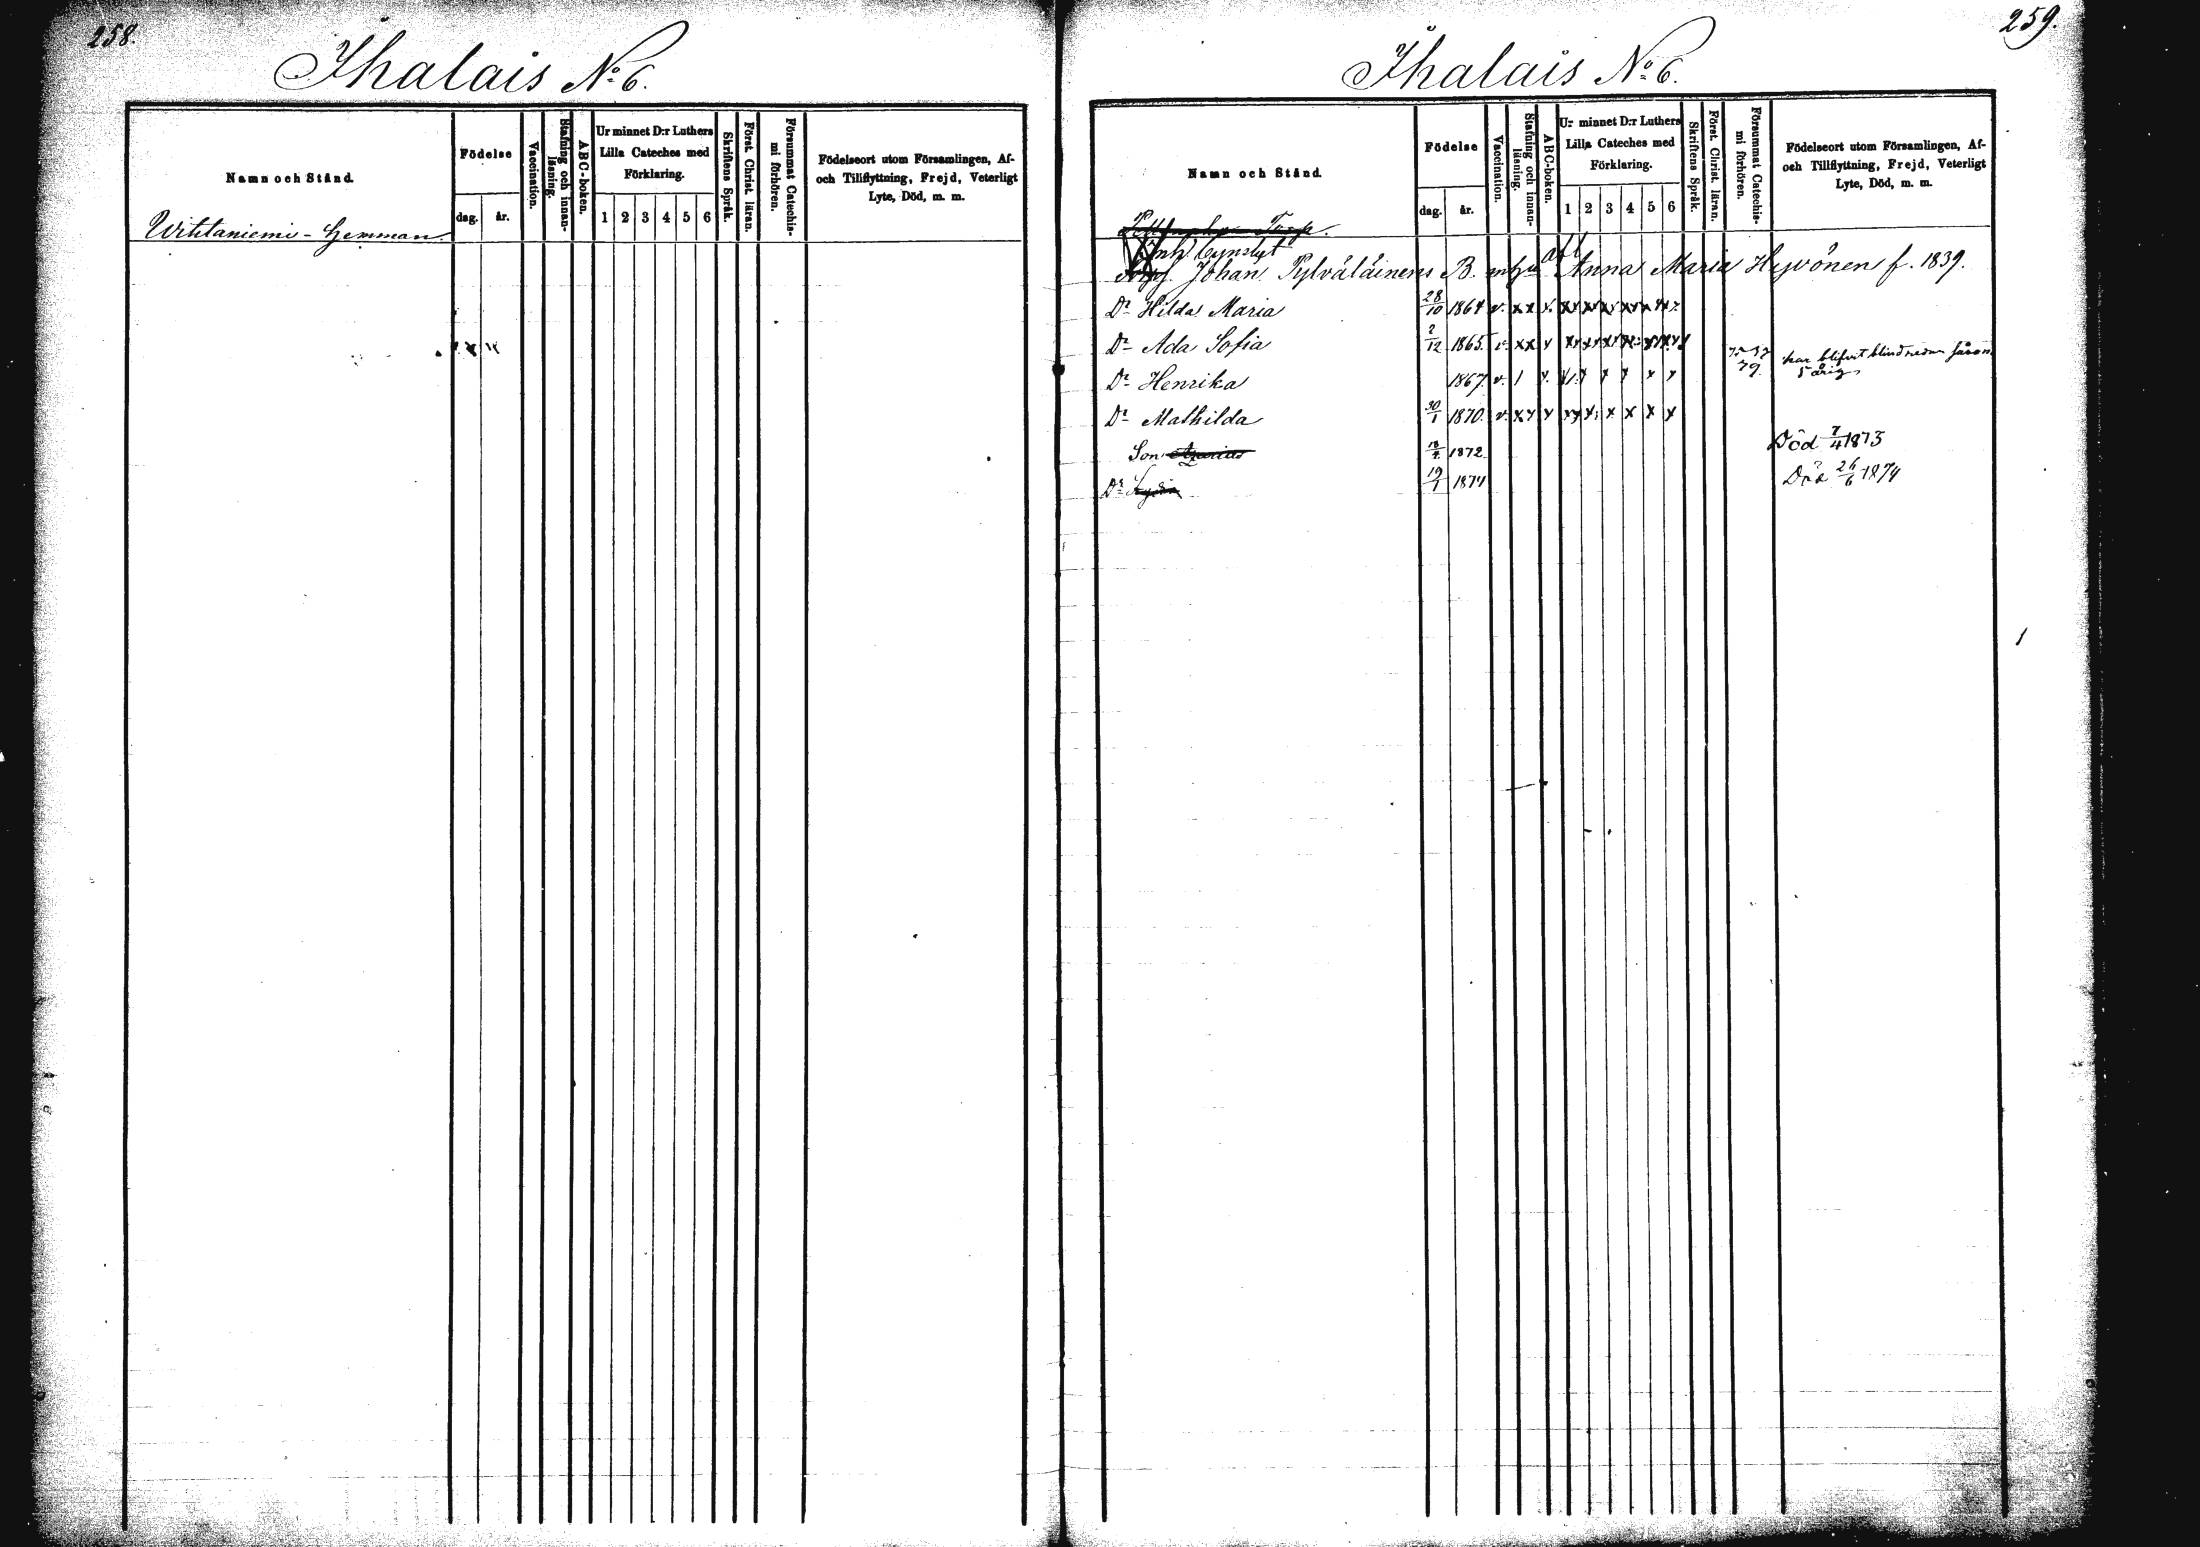 258.
Ihalais No 6.
Namn och Stånd.
Födelse
dag.
år.
Vaccination.
Stafning och innan-
läsning.
ABC-boken.
Ur minnet D:r Luthers
Lilla Cateches med
Förklaring.
1 2 3 4 5 6
Skriftens Språk.
Först. Christ. läran.
Försummat Catechis-
mi förhören.
Födelseort utom Församlingen, Af-
och Tillflyttning, Frejd, Veterligt
Lyte, Död, m. m.
Wihtaniemi - Hemman.
259.
Ihalais No 6.
Namn och Stånd.
Födelse
dag.
år.
Vaccination.
Stafning och innan-
läsning.
ABC-boken.
Ur minnet D:r Luthers
Lilla Cateches med
Förklaring.
1 2 3 4 5 6
Skriftens Språk.
Först. Christ. läran.
Försummat Catechis-
mi förhören.
Födelseort utom Församlingen, Af-
och Tillflyttning, Frejd, Veterligt
Lyte, Död, m. m.
Torp.
Inh.
Johan Pylväläinens B. m. hu Anna Maria Hyvönen f. 1839.
Dr Hilda Maria 28/10 1864 v. xx x.
Dr Ada Sofia 2/12 1865 v. xx x
har blifvit blind
5 årig
Dr Henrika 1867 v. 1 x.
Dr Mathilda 30/1 1870. v. xx x
Son 1872 Död 7/4 1873
Dr Lydia 19/1 1874 Död 26/6 1874